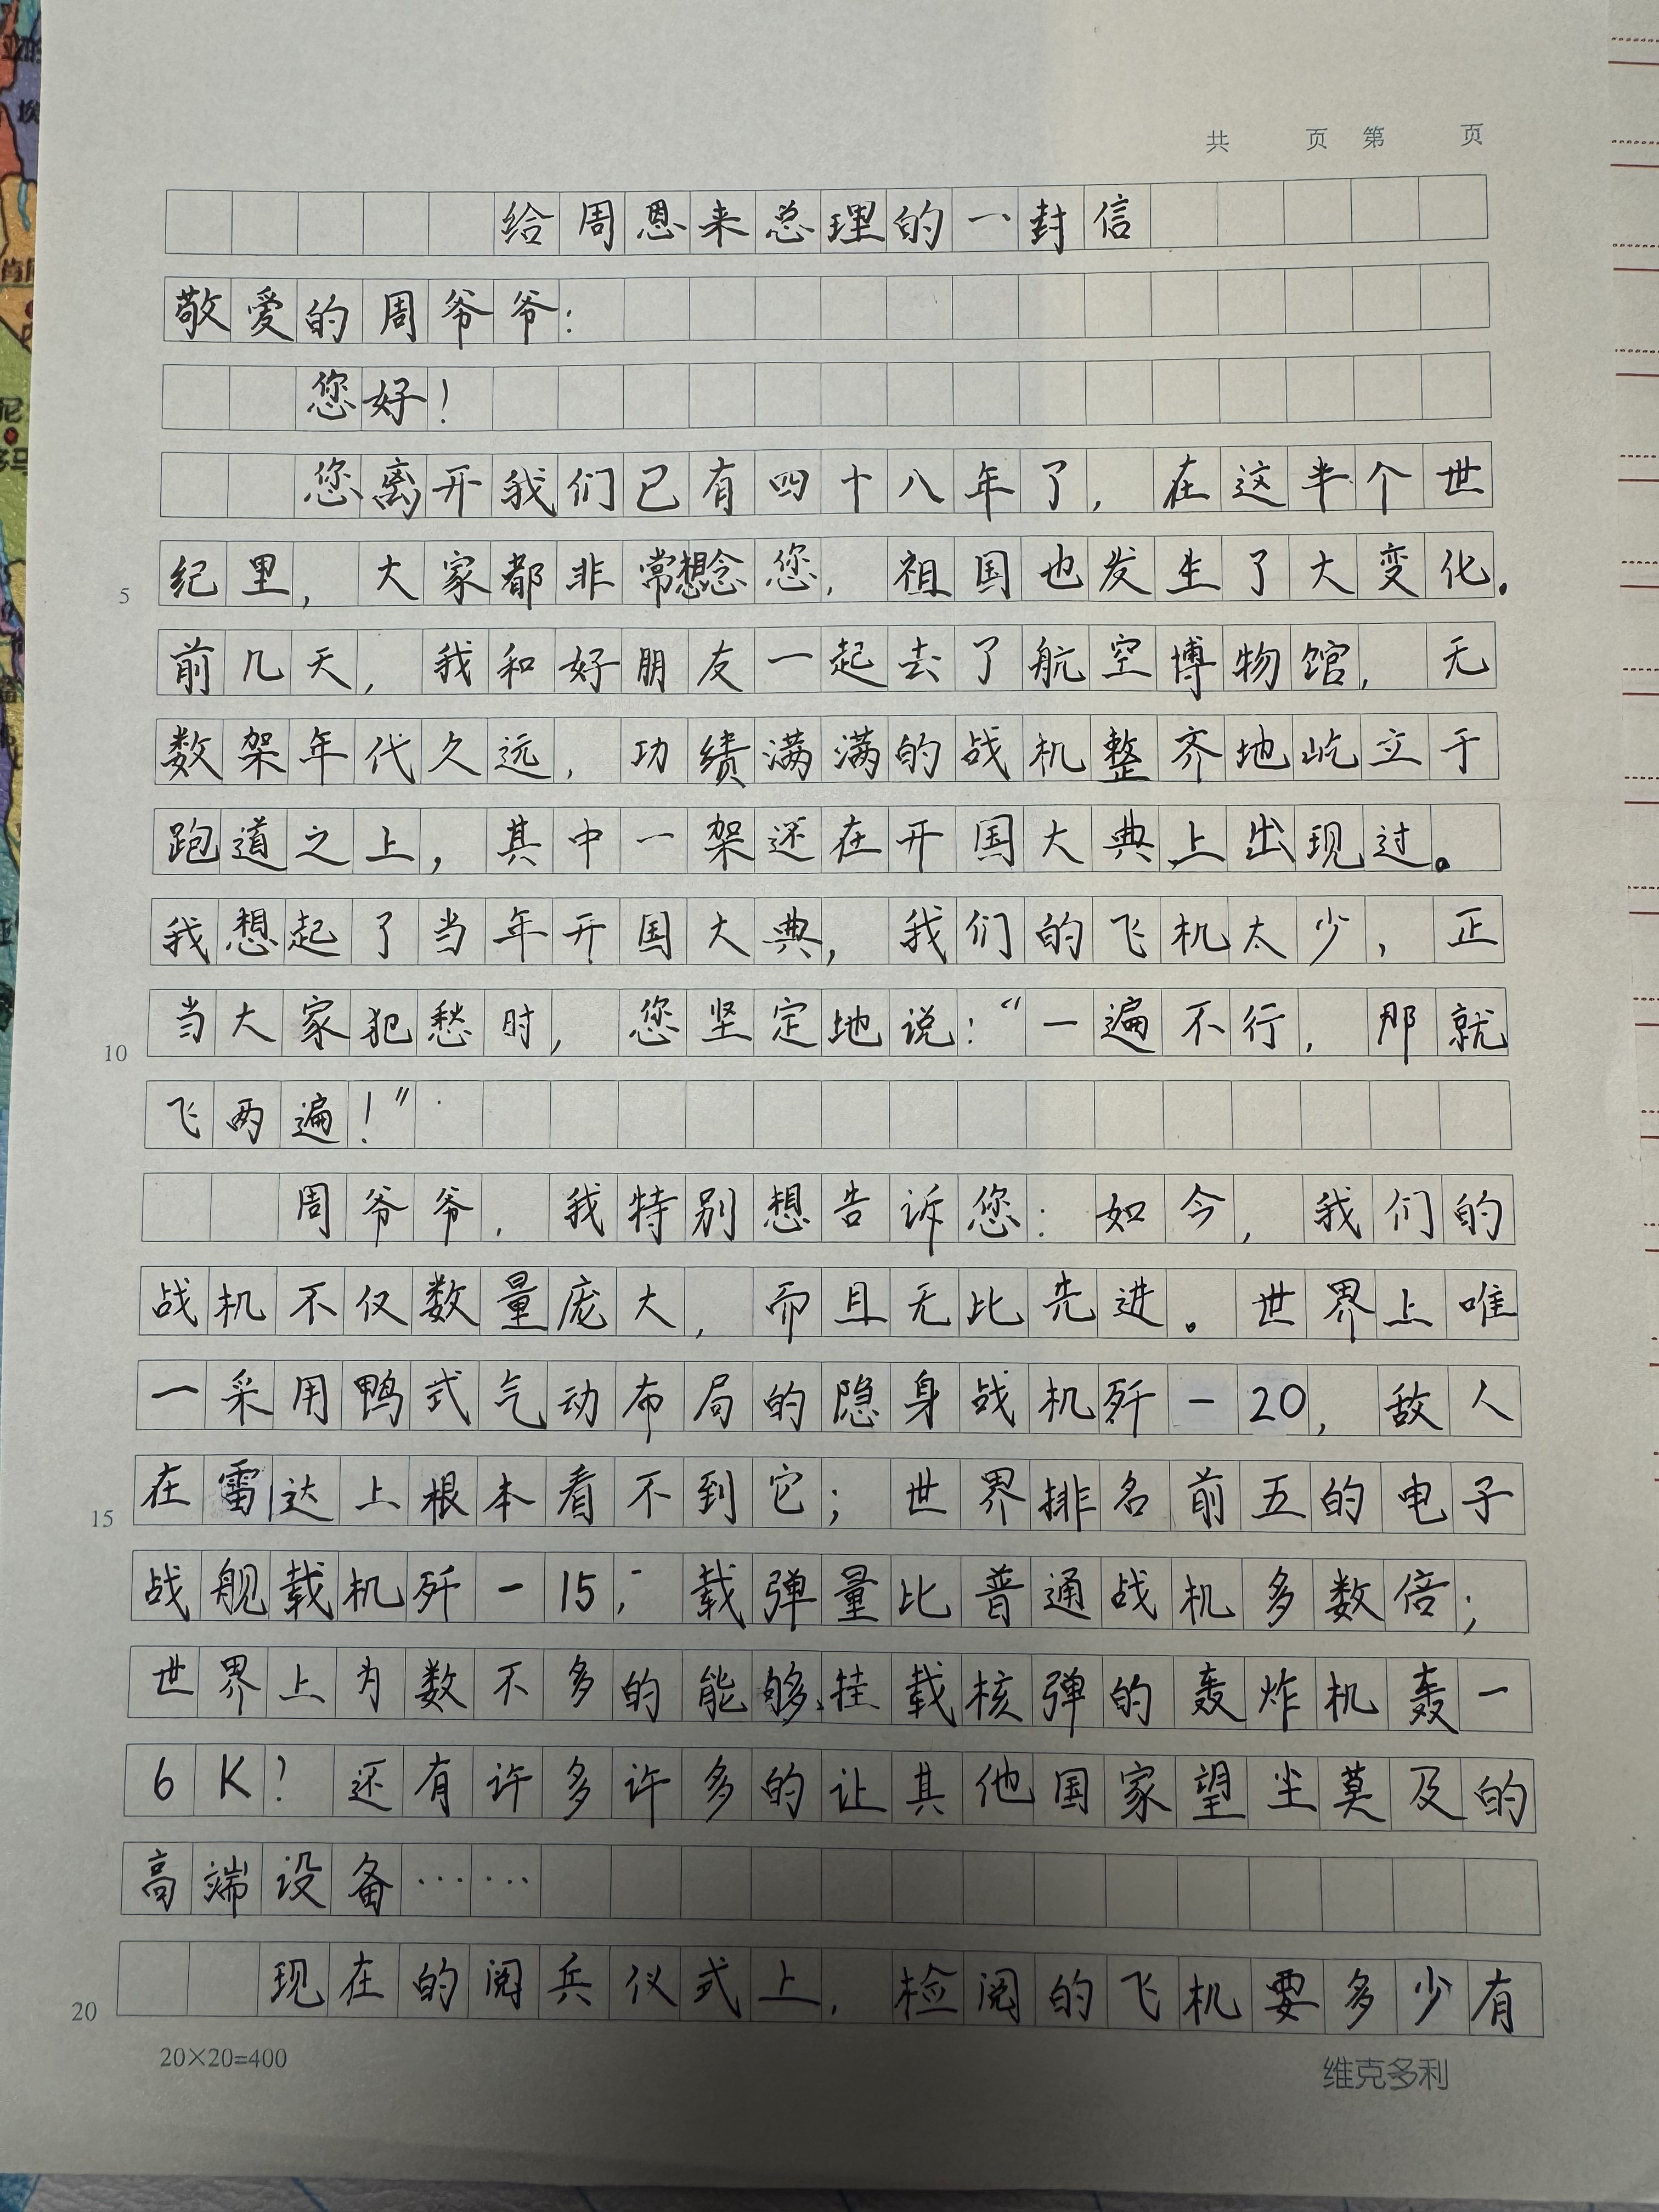 共 页 第 页
给周恩来总理的一封信
敬爱的周爷爷：
您好！
您离开我们已有四十八年了，在这半个世
纪里，大家都非常想念您，祖国也发生了大变化。
5
前几天，我和好朋友一起去了航空博物馆，无
数架年代久远，功绩满满的战机整齐地屹立于
跑道之上，其中一架还在开国大典上出现过。
我想起了当年开国大典，我们的飞机太少，正
当大家犯愁时，您坚定地说：“一遍不行，那就
10
飞两遍！”
周爷爷，我特别想告诉您：如今，我们的
战机不仅数量庞大，而且无比先进。世界上唯
一采用鸭式气动布局的隐身战机歼-20，敌人
在雷达上根本看不到它；世界排名前五的电子
15
战舰载机歼-15，载弹量比普通战机多数倍；
世界上为数不多的能够挂载核弹的轰炸机轰-
6K？还有许多许多的让其他国家望尘莫及的
高端设备……
现在的阅兵仪式上，检阅的飞机要多少有
20
20×20=400
维克多利